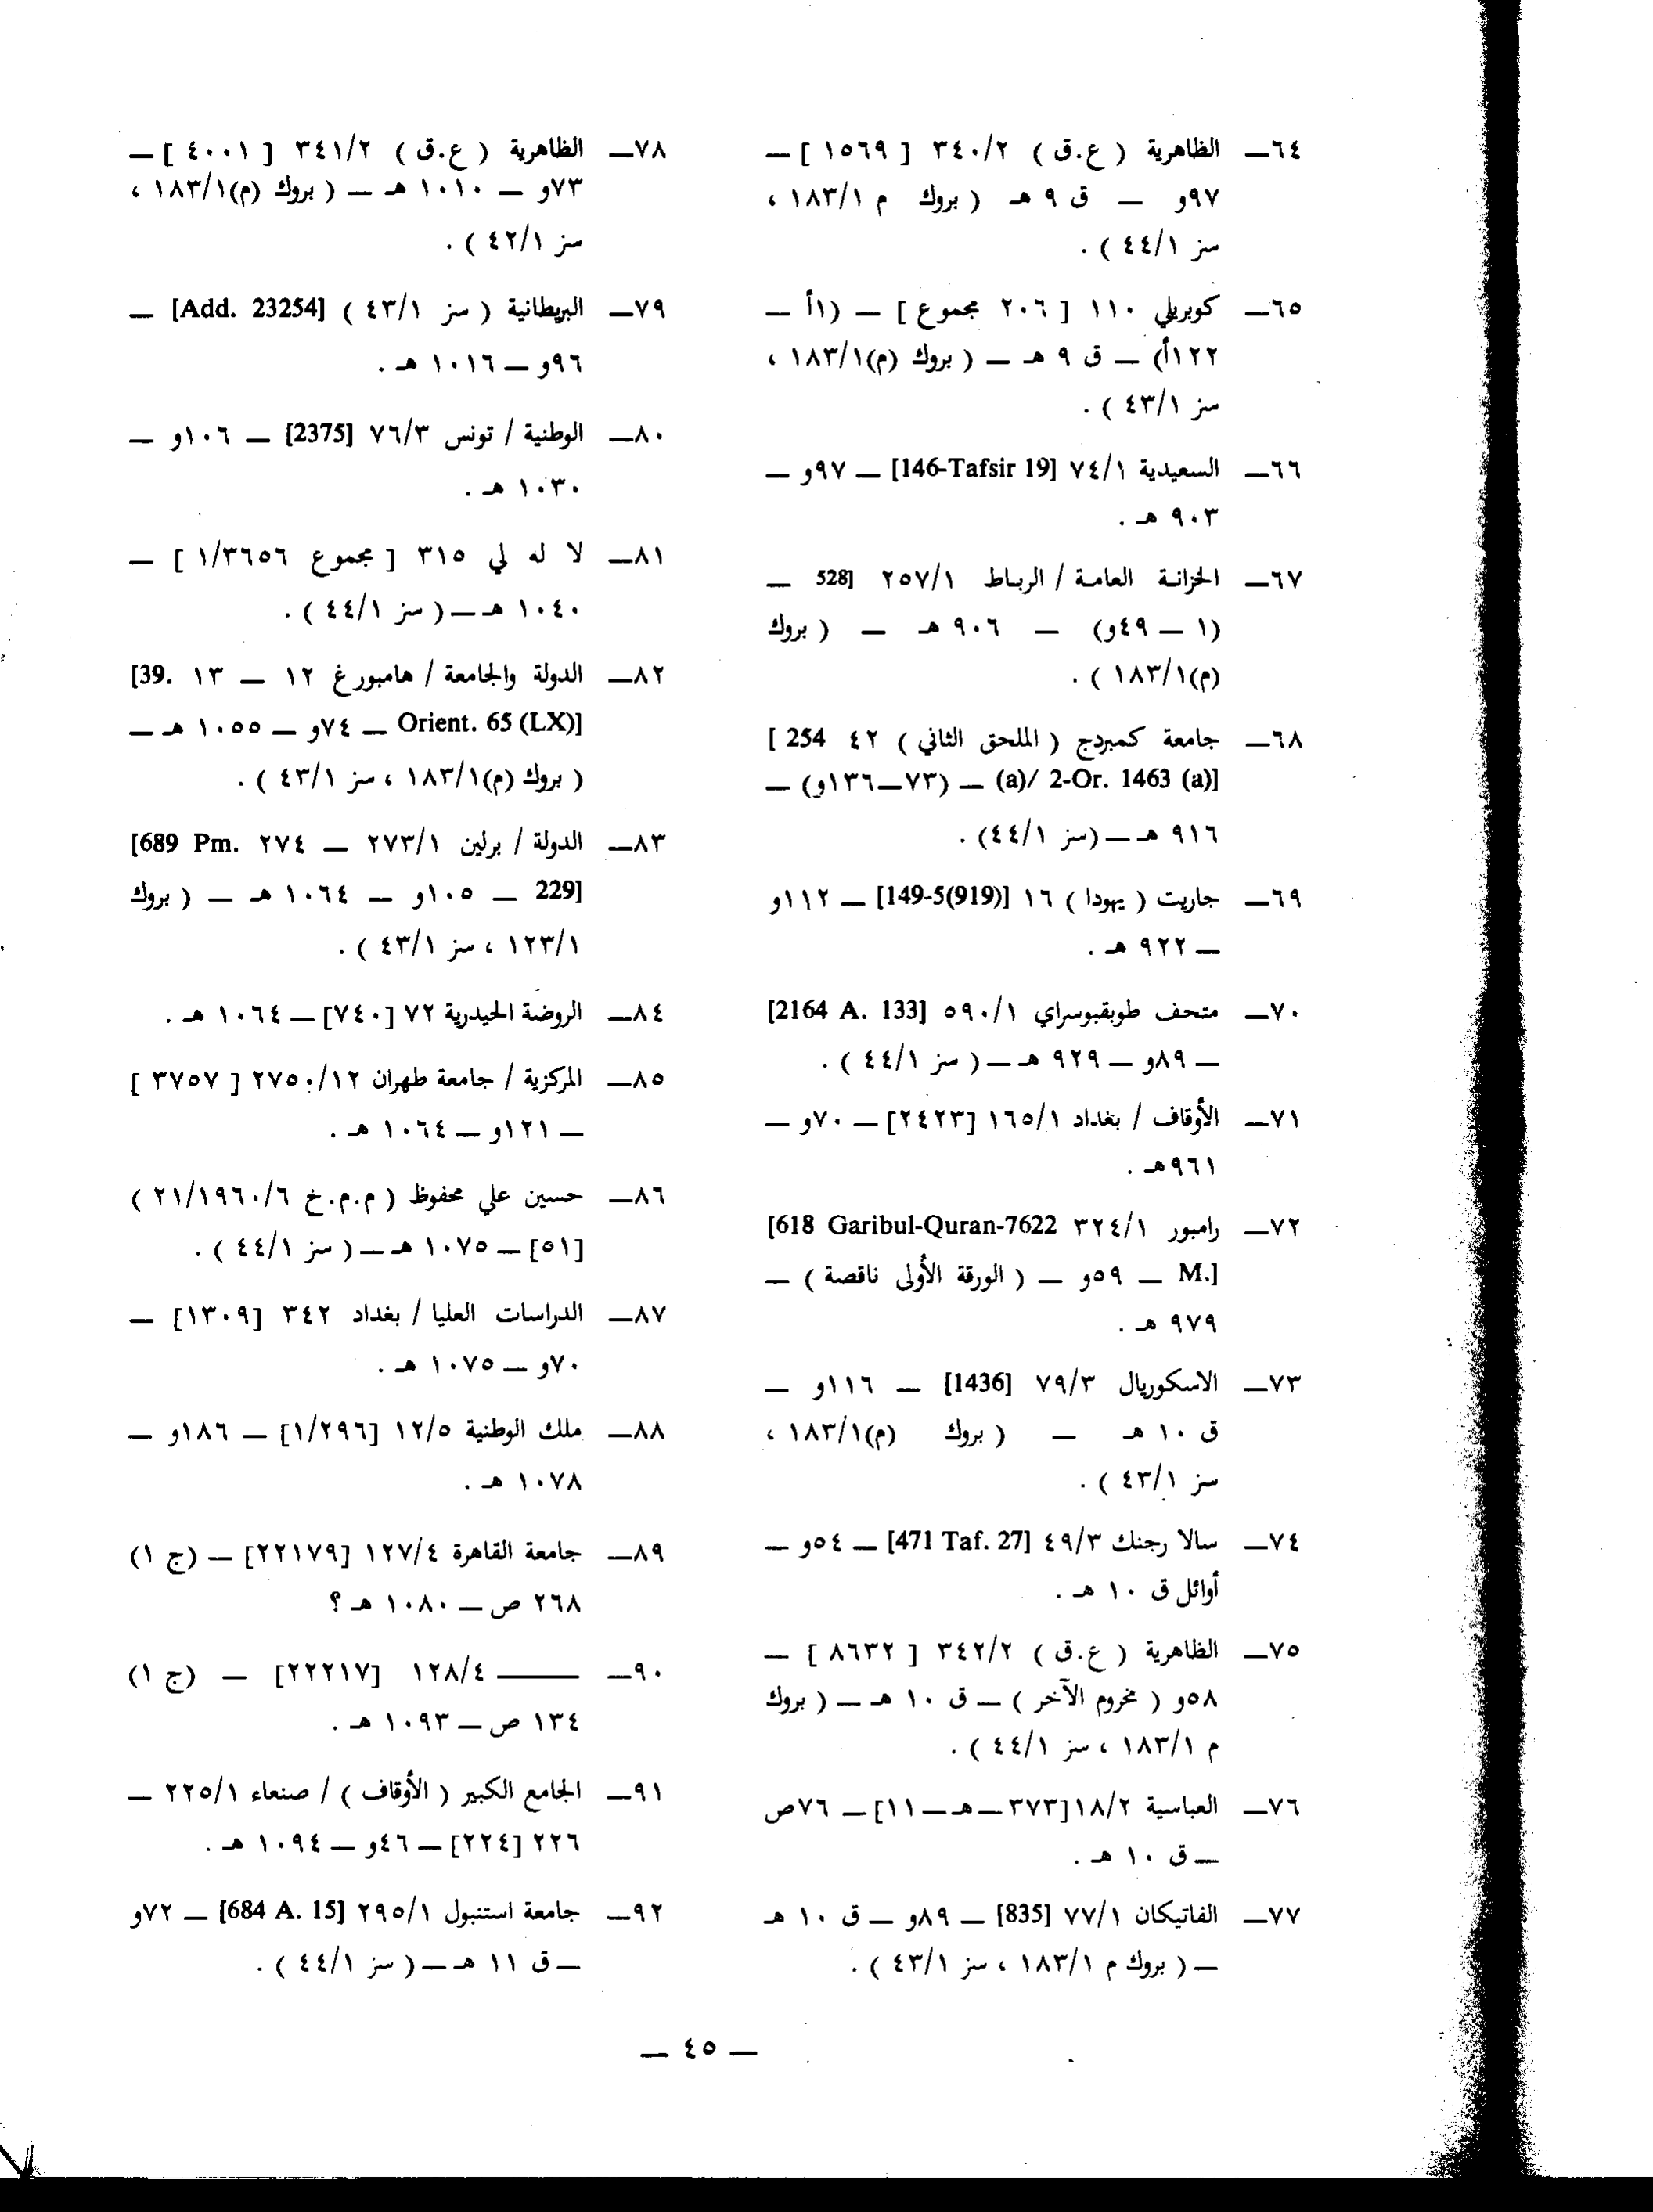 ٦٤ـ الظاهرية ( ع.ق ) ٣٤٠/٢ [ ١٥٦٩ ] ـ
٩٧و ـ ق ٩ هـ ( بروك م ١٨٣/١ ،
سز ٤٤/١ ) .
٦٥ـ كوبريلي ١١٠ [ ٢٠٦ مجموع ] ـ (١أ ـ
١٢٢أ) ـ ق ٩ هـ ـ ( بروك (م)١٨٣/١ ،
سز ٤٣/١ ) .
٦٦ـ السعيدية ٧٤/١ [146-Tafsir 19] ـ ٩٧و ـ
٩٠٣ هـ .
٦٧ـ الخزانة العامة / الرباط ٢٥٧/١ [528 ـ
(١ ـ ٤٩و) ـ ٩٠٦ هـ ـ ( بروك
(م)١٨٣/١ ) .
٦٨ـ جامعة كمبردج ( الملحق الثاني ) ٤٢ 254 ]
[(a)/ 2-Or. 1463 (a) ـ (٧٣ـ١٣٦و) ـ
٩١٦ هـ ـ (سز ٤٤/١) .
٦٩ـ جاريت ( يهودا ) ١٦ [149-5(919)] ـ ١١٢و
ـ ٩٢٢ هـ .
٧٠ـ متحف طوبقبوسراي ٥٩٠/١ [2164 A. 133]
ـ ٨٩و ـ ٩٢٩ هـ ـ ( سز ٤٤/١ ) .
٧١ـ الأوقاف / بغداد ١٦٥/١ [٢٤٢٣] ـ ٧٠و ـ
٩٦١هـ .
٧٢ـ رامبور ٣٢٤/١ 618 Garibul-Quran-7622]
[M. ـ ٥٩و ـ ( الورقة الأولى ناقصة ) ـ
٩٧٩ هـ .
٧٣ـ الاسكوريال ٧٩/٣ [1436] ـ ١١٦و ـ
ق ١٠ هـ ـ ( بروك (م)١٨٣/١ ،
سز ٤٣/١ ) .
٧٤ـ سالا رجنك ٤٩/٣ [471 Taf. 27] ـ ٥٤و ـ
أوائل ق ١٠ هـ .
٧٥ـ الظاهرية ( ع.ق ) ٣٤٢/٢ [ ٨٦٣٢ ] ـ
٥٨و ( مخروم الآخر ) ـ ق ١٠ هـ ـ ( بروك
م ١٨٣/١ ، سز ٤٤/١ ) .
٧٦ـ العباسية ١٨/٢[٣٧٣ـهـ ـ١١] ـ ٧٦ص
ـ ق ١٠ هـ .
٧٧ـ الفاتيكان ٧٧/١ [835] ـ ٨٩و ـ ق ١٠ هـ
ـ ( بروك م ١٨٣/١ ، سز ٤٣/١ ) .
٧٨ـ الظاهرية ( ع.ق ) ٣٤١/٢ [ ٤٠٠١ ] ـ
٧٣و ـ ١٠١٠ هـ ـ ( بروك (م)١٨٣/١ ،
سز ٤٢/١ ) .
٧٩ـ البريطانية ( سز ٤٣/١ ) [Add. 23254] ـ
٩٦و ـ ١٠١٦ هـ .
٨٠ـ الوطنية / تونس ٧٦/٣ [2375] ـ ١٠٦و ـ
١٠٣٠ هـ .
٨١ـ لا له لي ٣١٥ [ مجموع ١/٣٦٥٦ ] ـ
١٠٤٠ هـ ـ ( سز ٤٤/١ ) .
٨٢ـ الدولة والجامعة / هامبورغ ١٢ ـ ١٣ 39.]
[Orient. 65 (LX) ـ ٧٤و ـ ١٠٥٥ هـ ـ
( بروك (م)١٨٣/١ ، سز ٤٣/١ ) .
٨٣ـ الدولة / برلين ٢٧٣/١ ـ ٢٧٤ 689 Pm.]
[229 ـ ١٠٥و ـ ١٠٦٤ هـ ـ ( بروك
١٢٣/١ ، سز ٤٣/١ ) .
٨٤ـ الروضة الحيدرية ٧٢ [٧٤٠] ـ ١٠٦٤ هـ .
٨٥ـ المركزية / جامعة طهران ٢٧٥٠/١٢ [ ٣٧٥٧ ]
ـ ١٢١و ـ ١٠٦٤ هـ .
٨٦ـ حسين علي محفوظ ( م.م.خ ٢١/١٩٦٠/٦ )
[٥١] ـ ١٠٧٥ هـ ـ ( سز ٤٤/١ ) .
٨٧ـ الدراسات العليا / بغداد ٣٤٢ [١٣٠٩] ـ
٧٠و ـ ١٠٧٥ هـ .
٨٨ـ ملك الوطنية ١٢/٥ [١/٢٩٦] ـ ١٨٦و ـ
١٠٧٨ هـ .
٨٩ـ جامعة القاهرة ١٢٧/٤ [٢٢١٧٩] ـ (ج ١)
٢٦٨ ص ـ ١٠٨٠ هـ ؟
٩٠ـ ـــــــ ١٢٨/٤ [٢٢٢١٧] ـ (ج ١)
١٣٤ ص ـ ١٠٩٣ هـ .
٩١ـ الجامع الكبير ( الأوقاف ) / صنعاء ٢٢٥/١ ـ
٢٢٦ [٢٢٤] ـ ٤٦و ـ ١٠٩٤ هـ .
٩٢ـ جامعة استنبول ٢٩٥/١ [684 A. 15] ـ ٧٢و
ـ ق ١١ هـ ـ ( سز ٤٤/١ ) .
ـ ٤٥ ـ